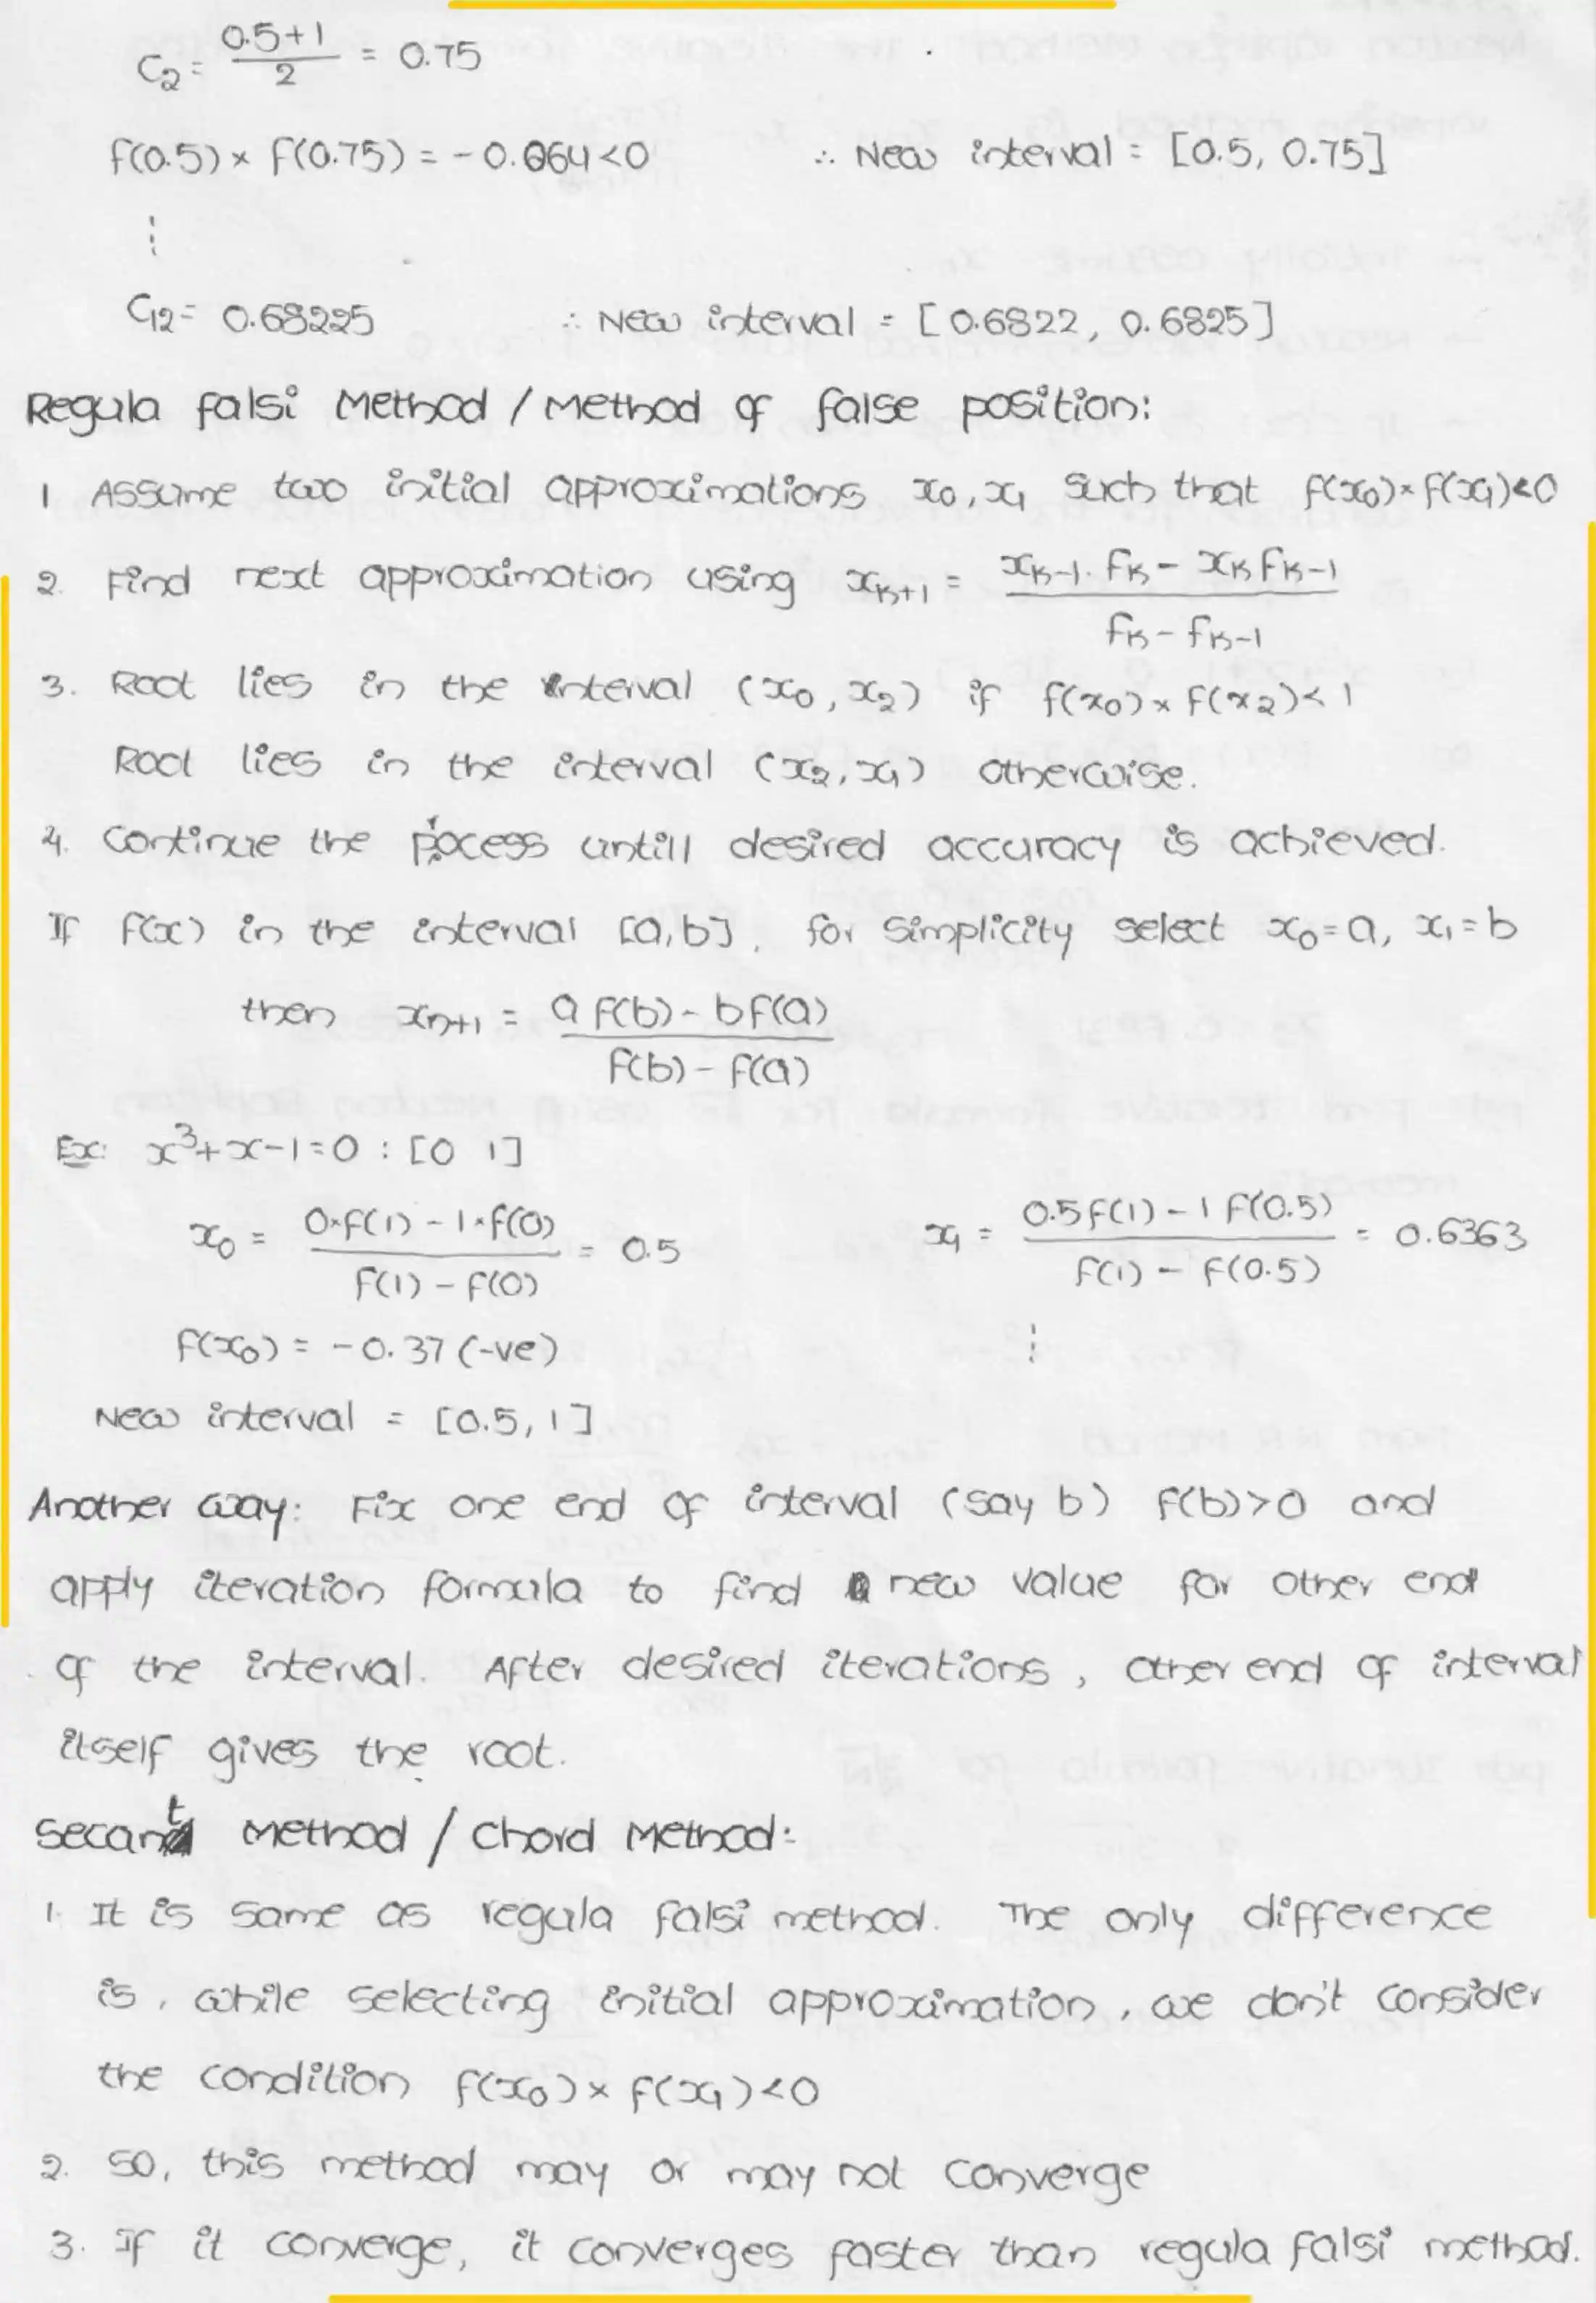 C₂ = (0.5+1)/2 = 0.75
f(0.5) × f(0.75) = -0.064 < 0 ∴ New interval = [0.5, 0.75]
⋮
C₁₂ = 0.68225 ∴ New interval = [0.6822, 0.6825]
Regula falsi Method / Method of false position:
1 Assume two initial approximations x₀, x₁ such that f(x₀) × f(x₁) < 0
2. Find next approximation using xₖ₊₁ = (xₖ₋₁ . fₖ - xₖ fₖ₋₁)/(fₖ - fₖ₋₁)
3. Root lies in the interval (x₀, x₂) if f(x₀) × f(x₂) < 1
Root lies in the interval (x₂, x₁) otherwise.
4. Continue the process untill desired accuracy is achieved.
If f(x) in the interval [a, b], for simplicity select x₀ = a, x₁ = b
then xₙ₊₁ = (a f(b) - b f(a))/(f(b) - f(a))
Ex: x³ + x - 1 = 0 : [0 1]
x₀ = (0×f(1) - 1×f(0))/(f(1) - f(0)) = 0.5 x₁ = (0.5 f(1) - 1 f(0.5))/(f(1) - f(0.5)) = 0.6363
f(x₀) = -0.37 (-ve) ⋮
New interval = [0.5, 1]
Another way: Fix one end of interval (say b) f(b) > 0 and
apply iteration formula to find a new value for other end
of the interval. After desired iterations, other end of interval
itself gives the root.
Secant Method / Chord Method:
1. It is same as regula falsi method. The only difference
is, while selecting initial approximation, we don't consider
the condition f(x₀) × f(x₁) < 0
2. So, this method may or may not converge
3. If it converge, it converges faster than regula falsi method.